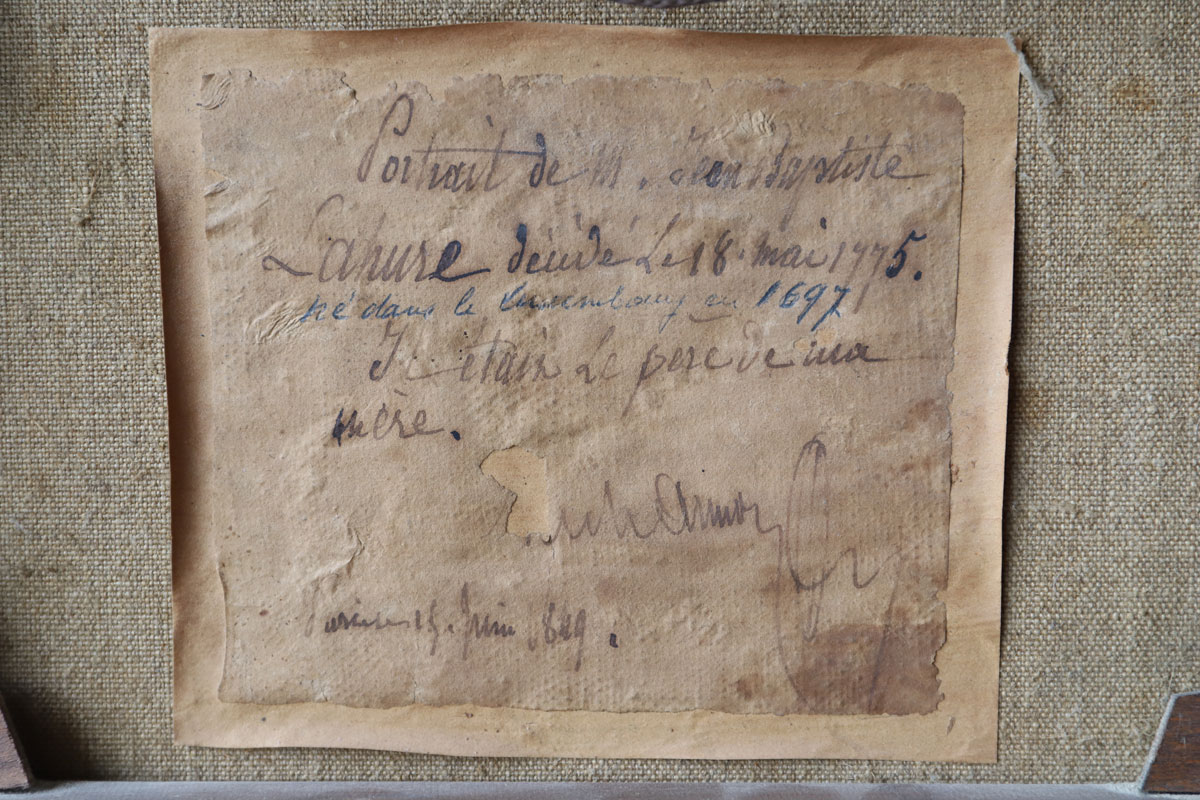 Portrait de M. Jean Baptiste
Lahure décédé Le 18 mai 1775.
né dans le Luxembourg en 1697
Il étain Le père de ma
mère.
Juin 1849.